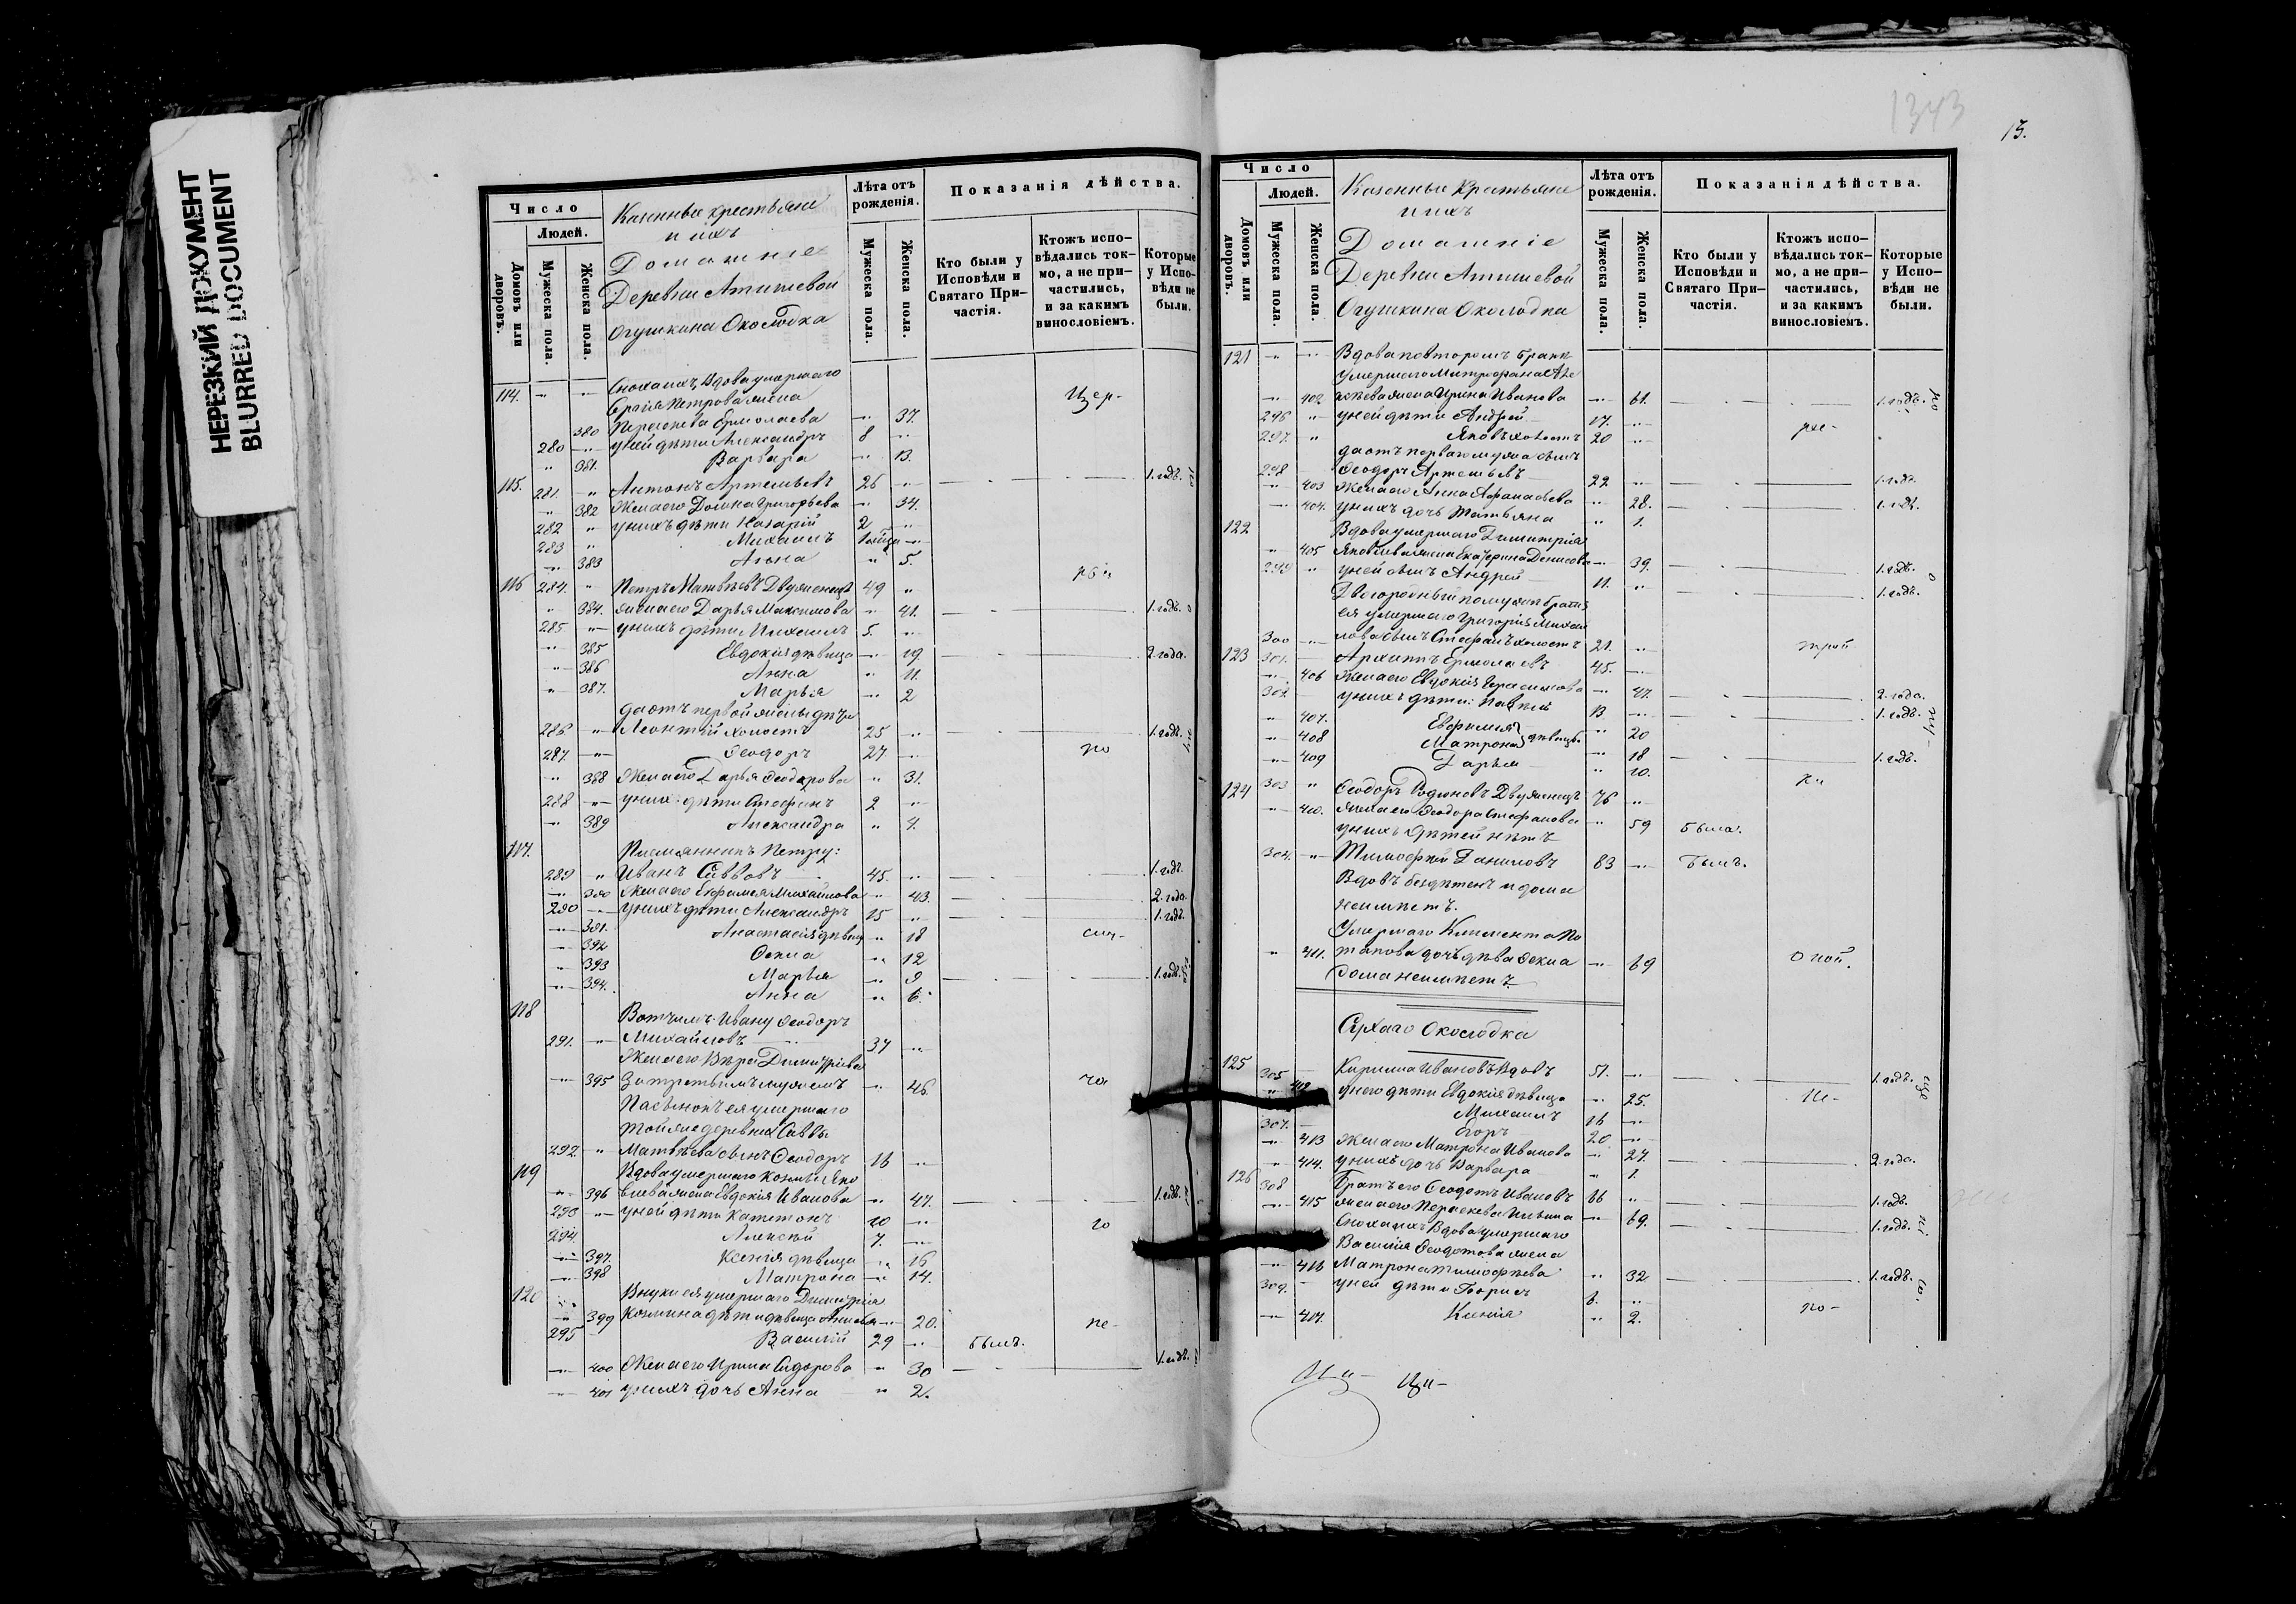 НЕРЕЗКИЙ ДОКУМЕНТ
BLURRED DOCUMENT
Число
Людей.
Домовъ или дворовъ.
Мужеска пола.
Женска пола.
Казенные крестьяне
и ихъ
Домашніе
Деревни Атишевой
Огушкина Околодка
Лѣта отъ рожденія.
Мужеска пола.
Женска пола.
Показанія дѣйства.
Кто были у Исповѣди и Святаго Причастія.
Ктожъ исповѣдались токмо, а не причастились, и за какимъ винословіемъ.
Которые у Исповѣди не были.
114. Сноха ихъ, Вдова умершаго
Петрова жена
380 Ермолаева 37.
280 у ней дѣти Александръ 8
381. Варвара 13.
115. 281. Антонъ Артемьевъ 26 1. годъ.
382 Жена его Домна Григорьева 34.
282 у нихъ дѣти Назарій 2
283 Михаилъ
383 Анна 5.
116 284. Петръ Матвѣевъ Двуженецъ 49
384. жена его Дарья Максимова 41. 1. годъ.
285 у нихъ дѣти Михаилъ 5.
385 Евдокія дѣвица 19. 2 года.
386 Анна 11.
387. Марья 2
да отъ первой жены дѣти
286 Леонтій холостъ 25 1. годъ.
287. Ѳеодоръ 27
388 Жена его Дарья Ѳеодорова 31.
288 у нихъ дѣти Стефанъ 2
389 Александра 4.
117. Племянникъ Петру:
289 Иванъ Савовъ 45. 1. годъ.
390 Жена его Евфимія Михайлова 43. 2. года.
290 у нихъ дѣти Александръ 15 1. годъ.
391. Анастасія дѣвица 18
392 Ѳекла 12
393 Марья 9 1. годъ.
394. Анна 6.
118 Вотчимъ Ивану Ѳеодоръ
291. Михайловъ 37
Жена его Вѣра Димитріева
395 За третьимъ мужемъ 46.
Пасынокъ ея умершаго
Той же деревни Саввы
292. Матвѣева сынъ Ѳеодоръ 16
119 Вдова умершаго Козмы Яко
396 влева жена Евдокія Иванова 47. 1. годъ.
293 у ней дѣти Капитонъ 10
294. Алексѣй 7.
397. Ксенія дѣвица 16
398 Матрона 14.
120 Внуки ея умершаго Димитрія
399 Козмина дѣти дѣвица 20.
295 Василій 29 былъ.
400 Жена его Ирина Сидорова 30 1. годъ.
401 у нихъ дочь Анна 2.
1343
13.
Число
Людей.
Домовъ или дворовъ.
Мужеска пола.
Женска пола.
Казенные Крестьяне
и ихъ
Домашніе
Деревни Атишевой
Огушкина Околодка
Лѣта отъ рожденія.
Мужеска пола.
Женска пола.
Показанія дѣйства.
Кто были у Исповѣди и Святаго Причастія.
Ктожъ исповѣдались токмо, а не причастились, и за какимъ винословіемъ.
Которые у Исповѣди не были.
121 Вдова по второмъ бракѣ
Умершаго Митрофана Але
402. ксѣева жена Ирина Иванова 61. 1. годъ.
296 у ней дѣти Андрей 17.
297. Яковъ холостъ 20
да отъ перваго мужа сынъ
298 Ѳеодоръ Артемьевъ 22 1. годъ.
403 Жена его Анна Афанасьева 28. 1. годъ.
404. у нихъ дочь Татьяна 1.
122 Вдова умершаго Димитрія
405 Яковлева жена Екатерина Денисова 39. 1. годъ.
299 у ней сынъ Андрей 11. 1. годъ.
Двоюродный по мужѣ братъ
ея умершаго Григорія Михаи
300 лова сынъ Стефанъ холостъ 21.
123 301. Архиппъ Ермолаевъ 45.
406 Жена его Евдокія Герасимова 47. 2. года.
302 у нихъ дѣти: 13 1. годъ.
407. Евфимія 20
408 Матрона дѣвицы 18 1. годъ.
409 Дарья 10.
124 303 Ѳеодоръ Родіоновъ Двуженецъ 76
410. жена его Ѳеодора Стефанова 59 была.
у нихъ дѣтей нѣтъ
304. Тимофей Даниловъ 83 былъ.
Вдовъ бездѣтенъ и дома
неимѣетъ.
Умершаго Климента По
411. тапова дочь дѣва Ѳекла 69
дома неимѣетъ
Сядкаго Околодка
125 305 Кирилла Ивановъ Вдовъ 51. 1. годъ.
412 у него дѣти Евдокія дѣвица 25.
Михаилъ 16
307. Егоръ 20
413 Жена его Матрона Иванова 27. 2. года.
414. у нихъ дочь Варвара 1.
126 308 Братъ его Ѳеодотъ Ивановъ 66 1. годъ.
415 жена его Параскева Ильина 69. 1. годъ.
Сноха ихъ Вдова умершаго
Василія Ѳеодотова жена
416 Матрона Тимофѣева 32 1. годъ.
309. у ней дѣти Борисъ 6.
417. Ксенія 2.